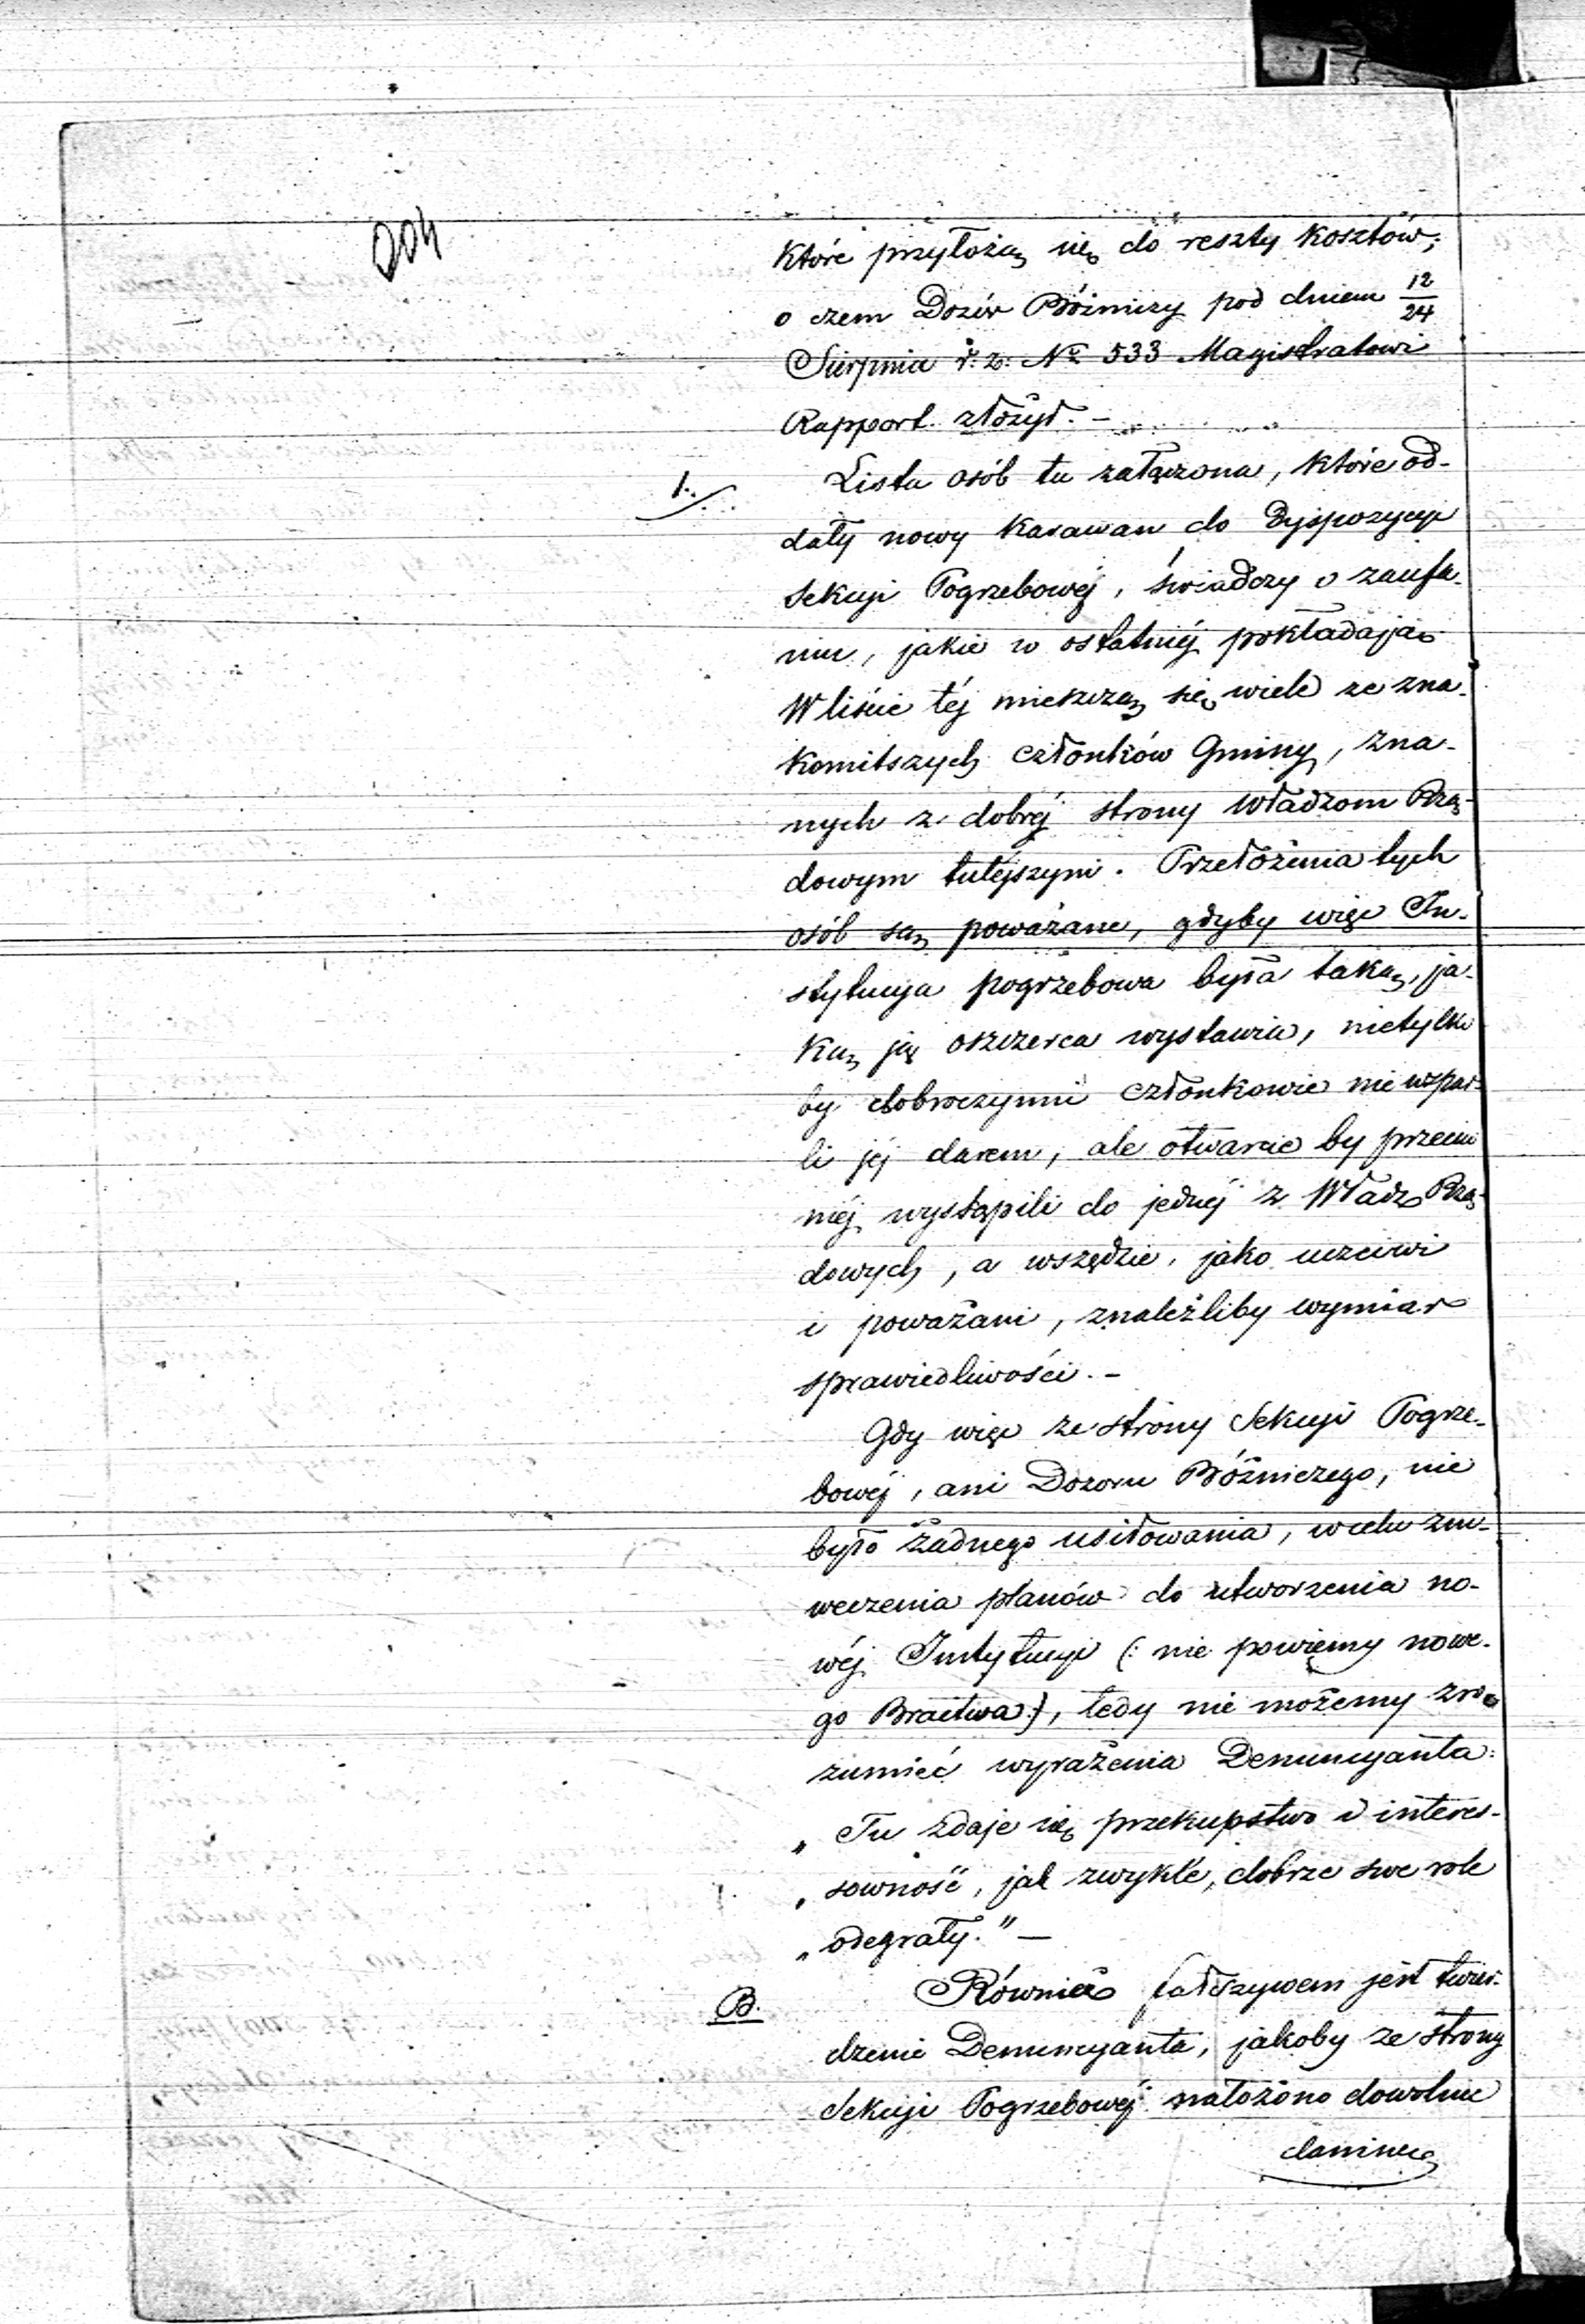 204
które przyłożą się do reszty kosztów;
o czem Dozór Bóżniczy pod dniem 12/24
Sierpnia r: z: № 533 Magistratowi
Rapport złożył. –
1./. Lista osób tu załączona, które od-
dały nowy Karawan do Dyspozycyi
Sekcyi Pogrzebowéj, świadczy o zaufa-
niu, jakie w ostatniéj pokładają
W liście téj mieszczą się wiele ze zna-
komitszych członków Gminy, zna-
nych z dobréj strony Władzom Rzą-
dowym tutéjszym. Przełożenia tych
osób są poważane, gdyby więc In-
stytucya pogrzebowa była taką, ja-
ką ją oszczerca wystawia, nietylko
by dobroczynni członkowie nie wspar-
li jéj darem, ale otwarcie by przeciw
niéj wystąpili do jednéj z Władz Rzą-
dowych, a wszędzie, jako uczciwi
i poważani, znaleźliby wymiar
sprawiedliwości. –
Gdy więc ze strony Sekcyi Pogrze-
bowéj, ani Dozoru Bóżniczego, nie
było żadnego usiłowania, w celu zni-
weczenia planów do utworzenia no-
wéj Instytucyi (: nie powiemy nowe-
go Bractwa :), tedy nie możemy zro-
zumieć wyrażenia Denuncyanta:
„Tu zdaje się przekupstwo i interes-
„sowność, jak zwykle, dobrze swe role
„odegrały." –
B. Również fałszywem jest twier-
dzenie Denuncyanta, jakoby ze strony
Sekcyi Pogrzebowéj nałożono dowolnie
daninę